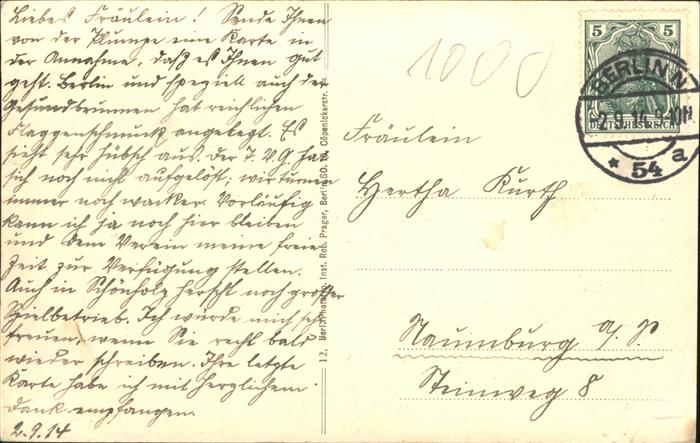 Liebes Fräulein! Sende Ihnen
von der Plumpe eine Karte in
der Annahme, daß es Ihnen gut
geht. Berlin und speziell auch der
Gesundbrunnen hat reichlichen
Flaggenschmuck angelegt. Es
sieht sehr hübsch aus. Der T.V.G. hat
sich noch nicht aufgelöst; wir turnen
immer noch wacker. Vorläufig
kann ich ja noch hier bleiben
und dem Verein meine freie
Zeit zur Verfügung stellen.
Auch in Schönholz herscht noch großer
Spielbetrieb. Ich würde mich sehr
freuen, wenn Sie recht bald
wieder schreiben. Ihre letzte
Karte habe ich mit herzlichem
Dank empfangen.
2.9.14
12. Berl. Inst. Rob. Prager, Berlin SO. Cöpenickerstr.
1000
5 5
DEUTSCHES REICH
BERLIN N
2.9.14.
* 54 a
Fräulein
Hertha Kurth
Naumburg a/S
Steinweg 8